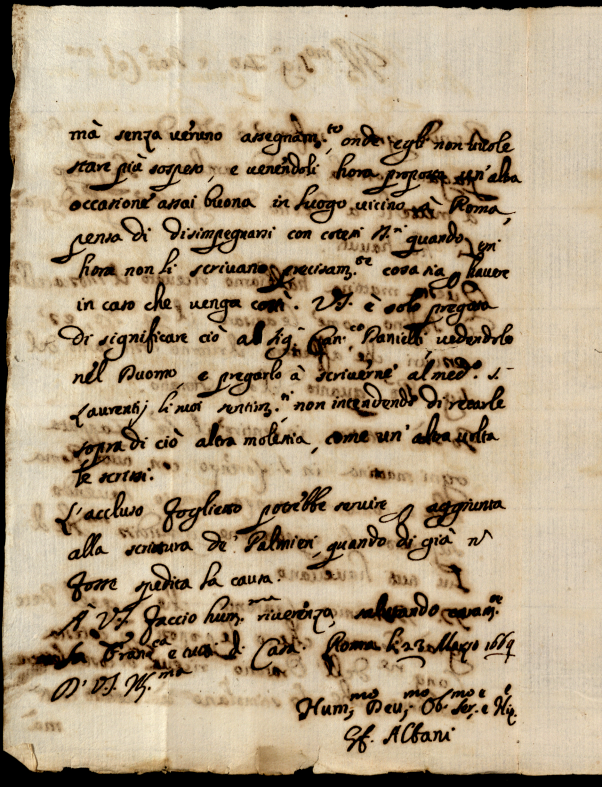 mà senza veruno assegnam.to onde egli non vuole
stare più sospeso, e venendoli hora proposta un'altra
occasione assai buona in luogo vicino à Roma,
pensa di disimpegnarsi con cotesti SS.ri quando
hora non li scrivano precisam.te cosa sia p havere
in caso che venga costì. V.S. è solo pregata
di significare ciò al Sig.r Can.co Danielli vedendolo
nel Duomo, e pregarlo à scriverne al med.o S.r
Laurentij li suoi sentim.ti non intendendo di recarle
sopra di ciò altra molestia, come un'altra volta
le scrissi.
L'accluso foglietto potrebbe servire p aggiunta
alla scrittura de' Palmieri, quando di già n
fosse spedita la causa.
À V.S. faccio hum.ma riverenza, salutando caram.te
la Fran.ca e tutti di Casa. Roma li 23 Marzo 1669
D. V.S. Ill.ma
Hum.mo Dev.mo Ob.mo Ser.e e
Gf. Albani